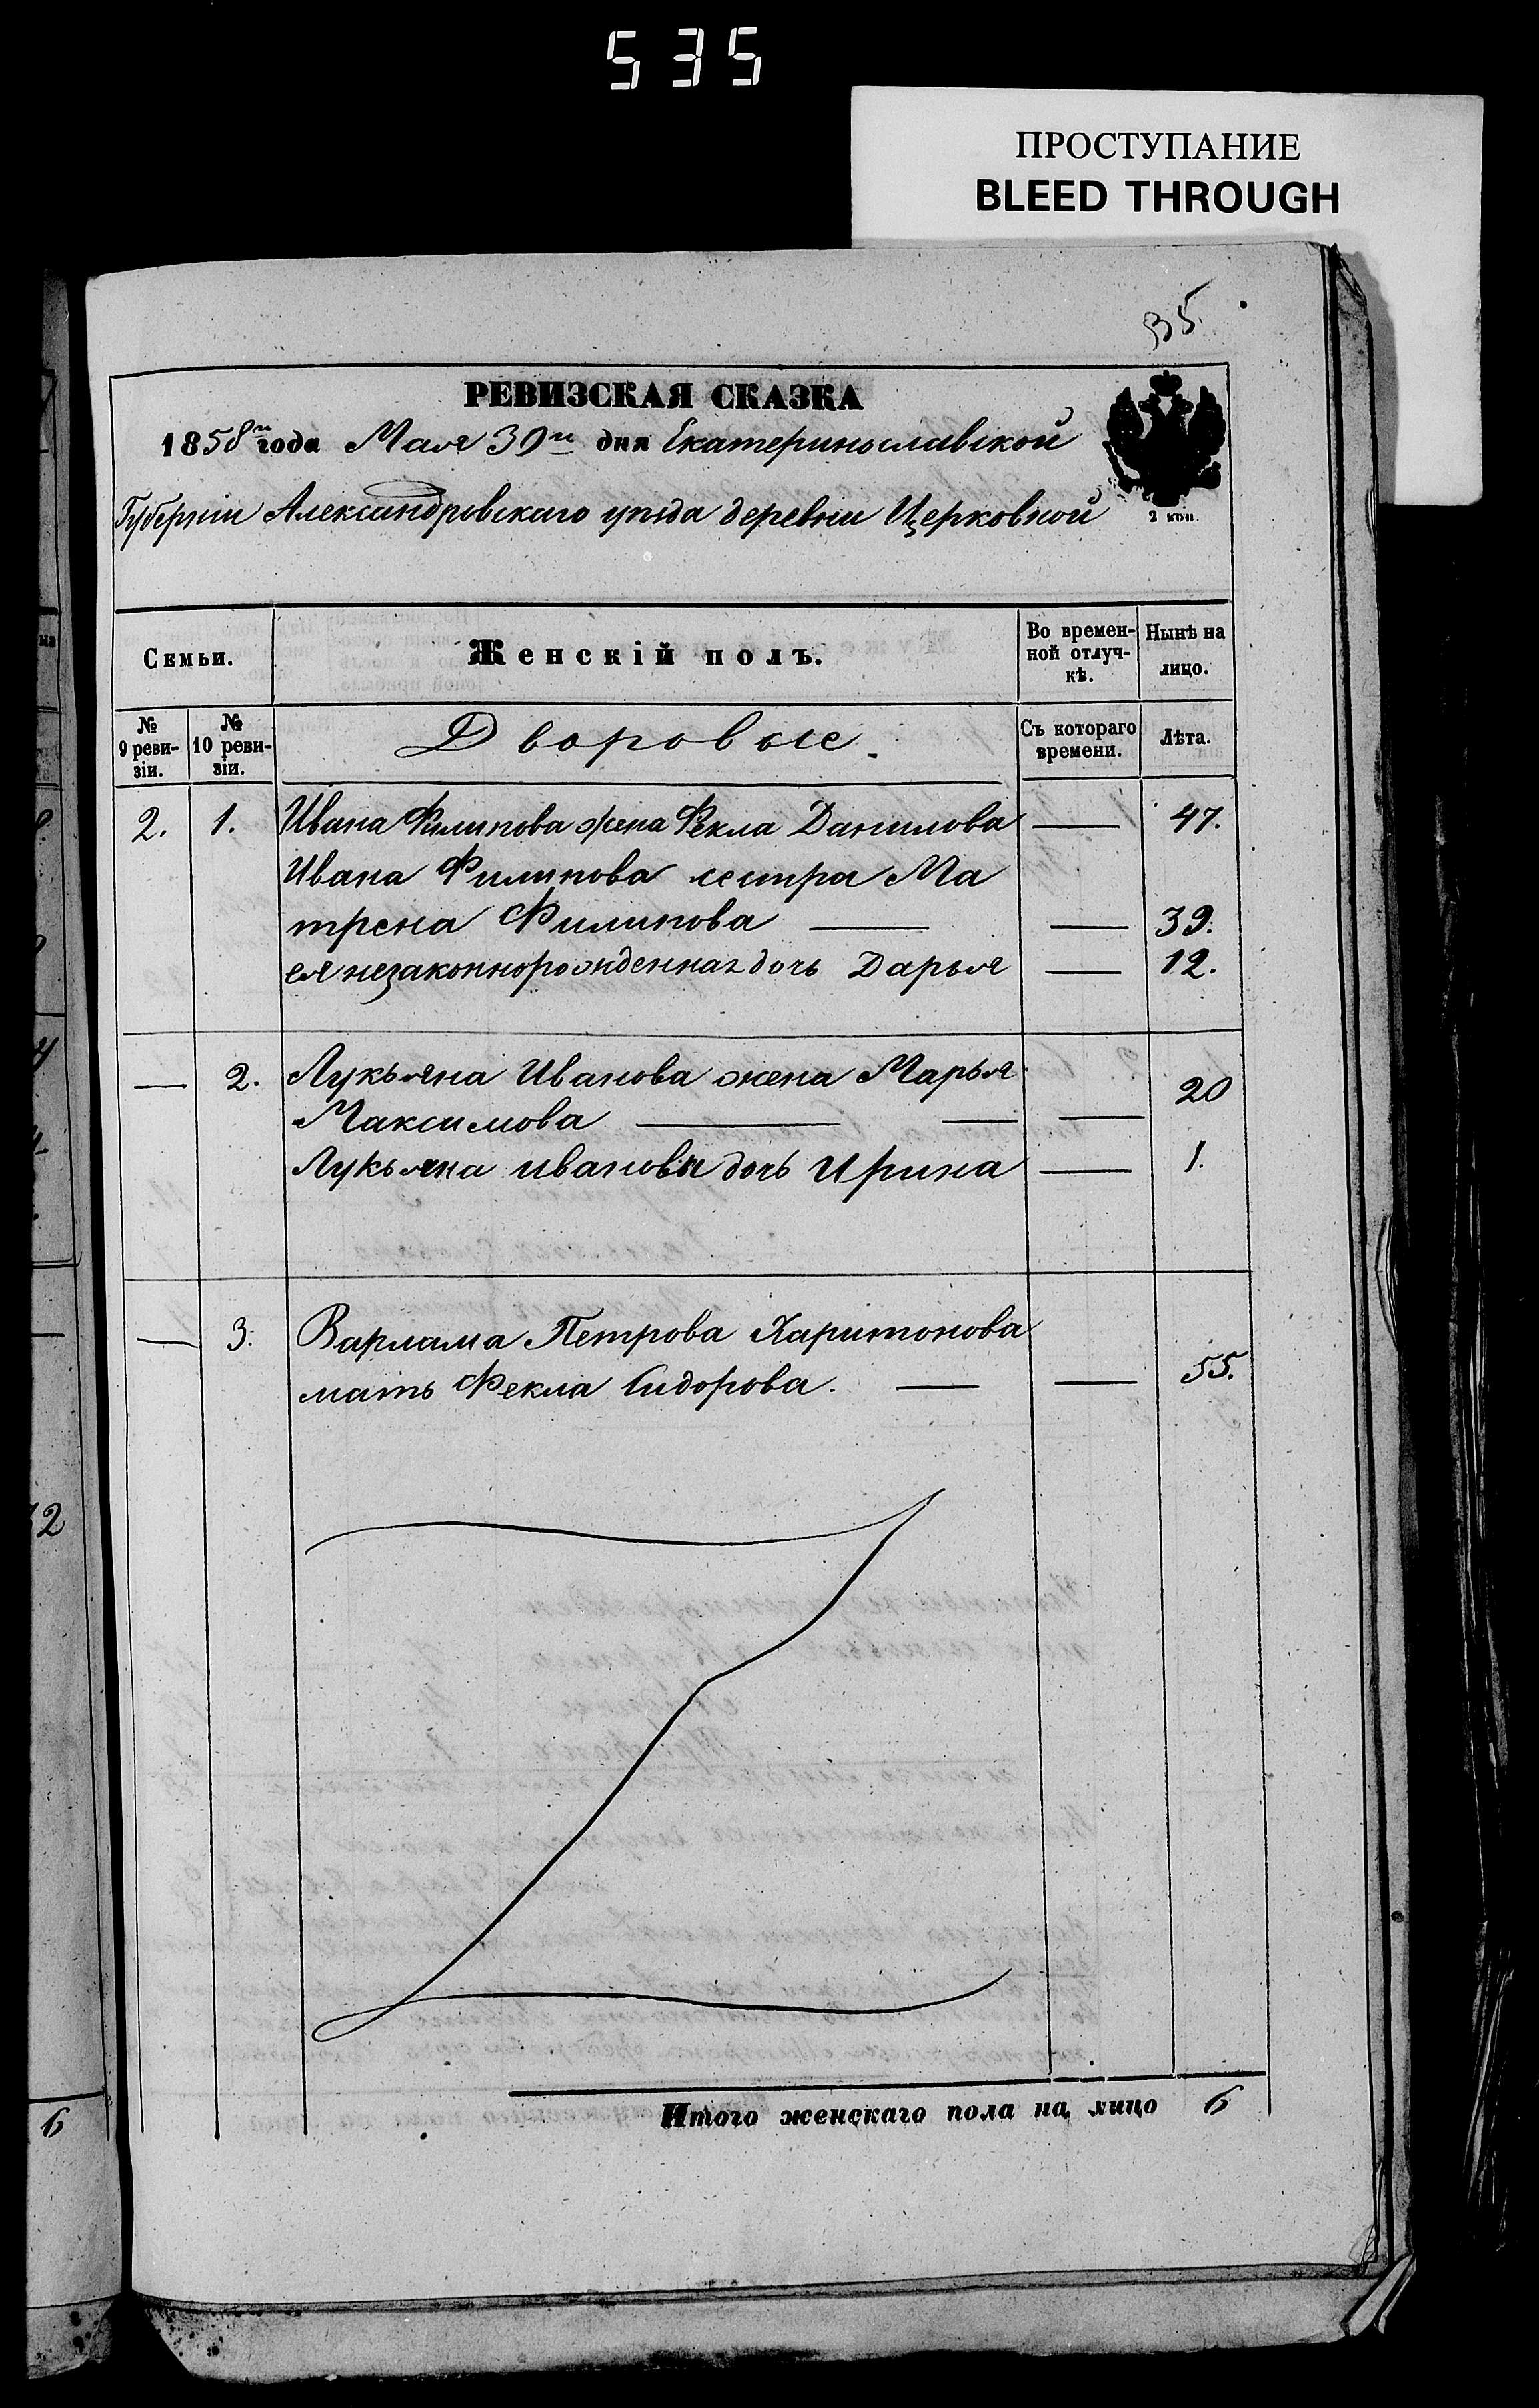 535
ПРОСТУПАНИЕ
BLEED THROUGH
35
РЕВИЗСКАЯ СКАЗКА
1858го года Мая 30го дня Екатеринославской
Губернiи Александровскаго уѣзда деревни Церковной
2 коп.
Семьи.
Женскiй полъ.
Во времен-
ной отлуч-
кѣ.
Нынѣ на
лицо.
№
9 реви-
зiи.
№
10 реви-
зiи.
Дворовые.
Съ котораго
времени.
Лѣта.
2. 1. Ивана Филипова жена Фекла Данилова — 47.
Ивана Филипова сестра Ма
трена Филипова — — 39.
ея незаконнорожденная дочь Дарья — 12.
— 2. Лукьяна Иванова жена Марья
Максимова — — — 20
Лукьяна Иванова дочь Ирина — 1.
— 3. Варлама Петрова Харитонова
мать Фекла Сидорова. — — 55.
Итого женскаго пола на лицо 6
12
6